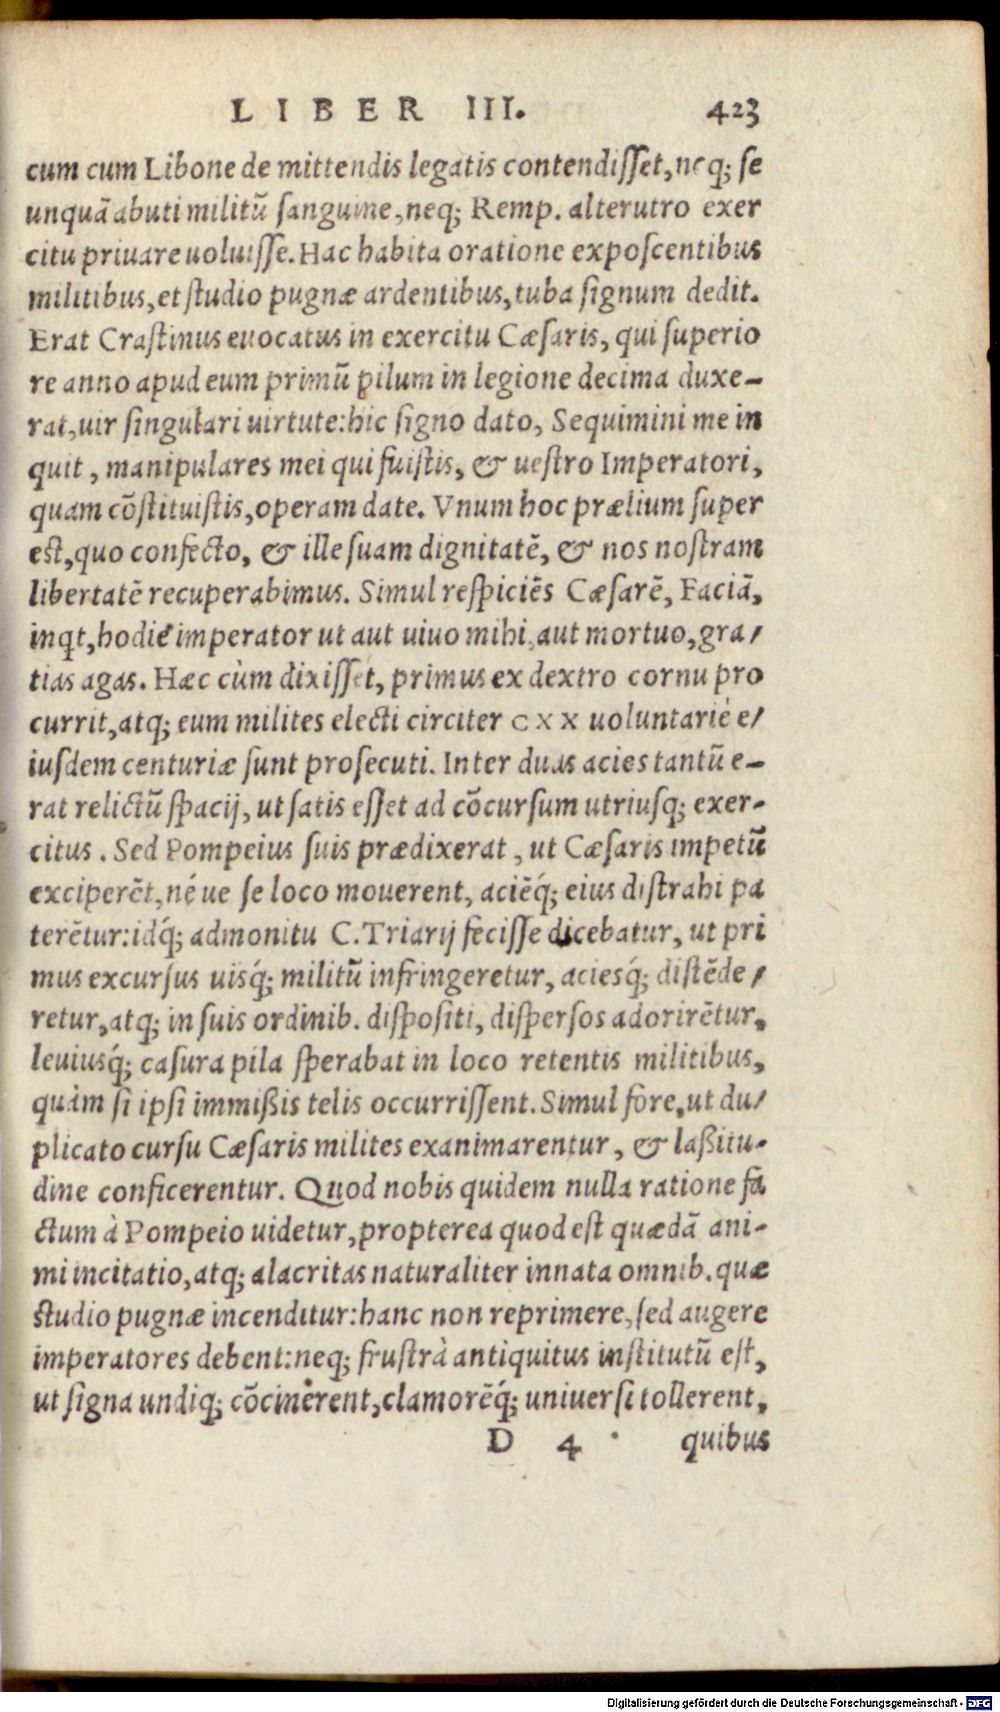 LIBER III. 423
cum cum Libone de mittendis legatis contendisset, neq; se
unquā abuti militū sanguine, neq; Remp. alterutro exer
citu priuare uoluisse. Hac habita oratione exposcentibus
militibus, et studio pugnæ ardentibus, tuba signum dedit.
Erat Crastinus euocatus in exercitu Cæsaris, qui superio
re anno apud eum primū pilum in legione decima duxe-
rat, uir singulari uirtute: hic signo dato, Sequimini me in
quit, manipulares mei qui fuistis, & uestro Imperatori,
quam cōstituistis, operam date. Vnum hoc prælium super
est, quo confecto, & ille suam dignitatē, & nos nostram
libertatē recuperabimus. Simul respiciēs Cæsarē, Faciā,
inqt, hodie imperator ut aut uiuo mihi, aut mortuo, gra/
tias agas. Hæc cùm dixisset, primus ex dextro cornu pro
currit, atq; eum milites electi circiter cxx uoluntarié e/
iusdem centuriæ sunt prosecuti. Inter duas acies tantū e-
rat relictū spacij, ut satis esset ad cōcursum utriusq; exer-
citus. Sed Pompeius suis prædixerat, ut Cæsaris impetū
exciperēt, né ue se loco mouerent, aciēq́; eius distrahi pa
terētur: idq́; admonitu C. Triarij fecisse dicebatur, ut pri
mus excursus uisq́; militū infringeretur, aciesq́; distēde/
retur, atq; in suis ordinib. dispositi, dispersos adorirētur,
leuiusq́; casura pila sperabat in loco retentis militibus,
quàm si ipsi immißis telis occurrissent. Simul fore, ut du/
plicato cursu Cæsaris milites exanimarentur, & laßitu-
dine conficerentur. Quod nobis quidem nulla ratione fa
ctum à Pompeio uidetur, propterea quod est quædā ani-
mi incitatio, atq; alacritas naturaliter innata omnib. quæ
studio pugnæ incenditur: hanc non reprimere, sed augere
imperatores debent: neq; frustrà antiquitus institutū est,
ut signa undiq; cōcinerent, clamorēq́; uniuersi tollerent,
D 4 quibus
Digitalisierung gefördert durch die Deutsche Forschungsgemeinschaft - DFG